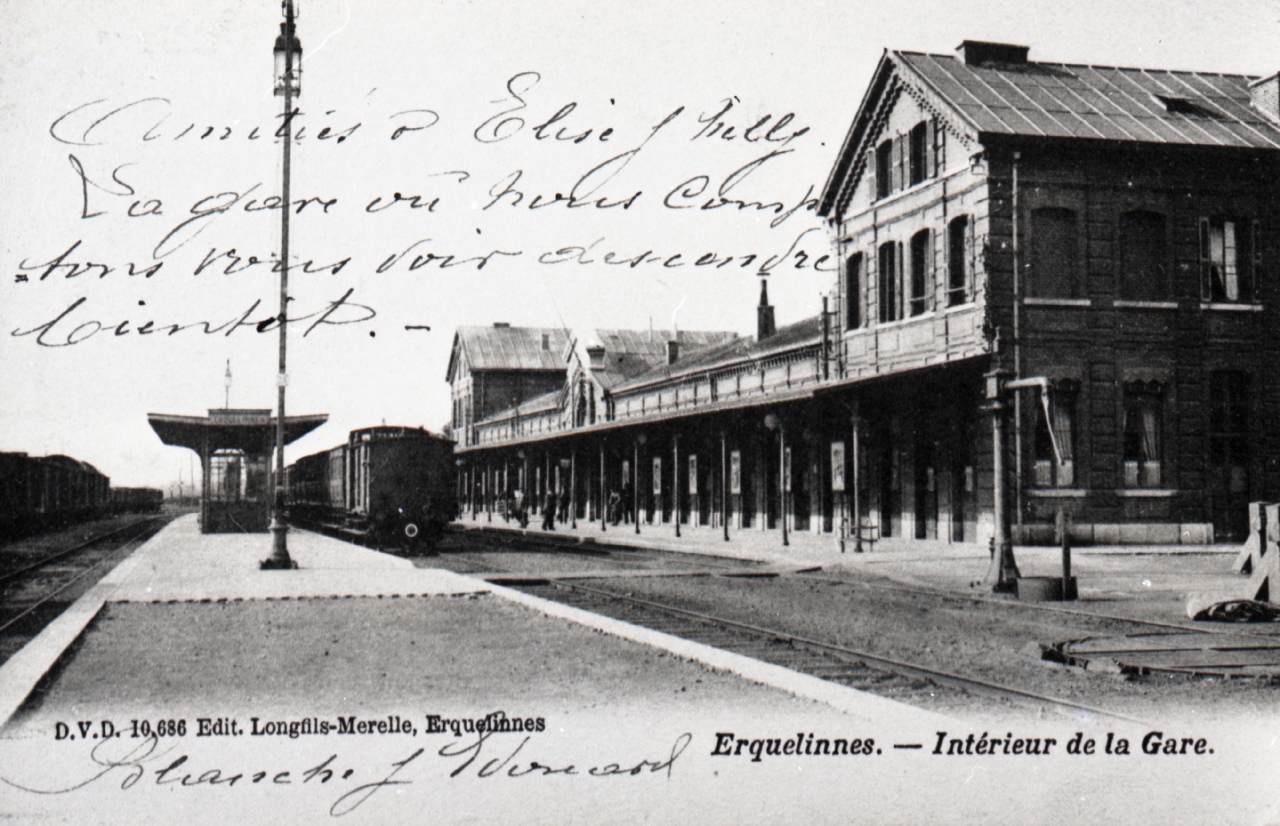 Amitiés à Elise & Nelly.
La gare où nous comp
=tons vous voir descendre
bientôt. –
D.V.D. 10,686 Edit. Longfils-Merelle, Erquelinnes
Erquelinnes. — Intérieur de la Gare.
Blanche & Edouard.